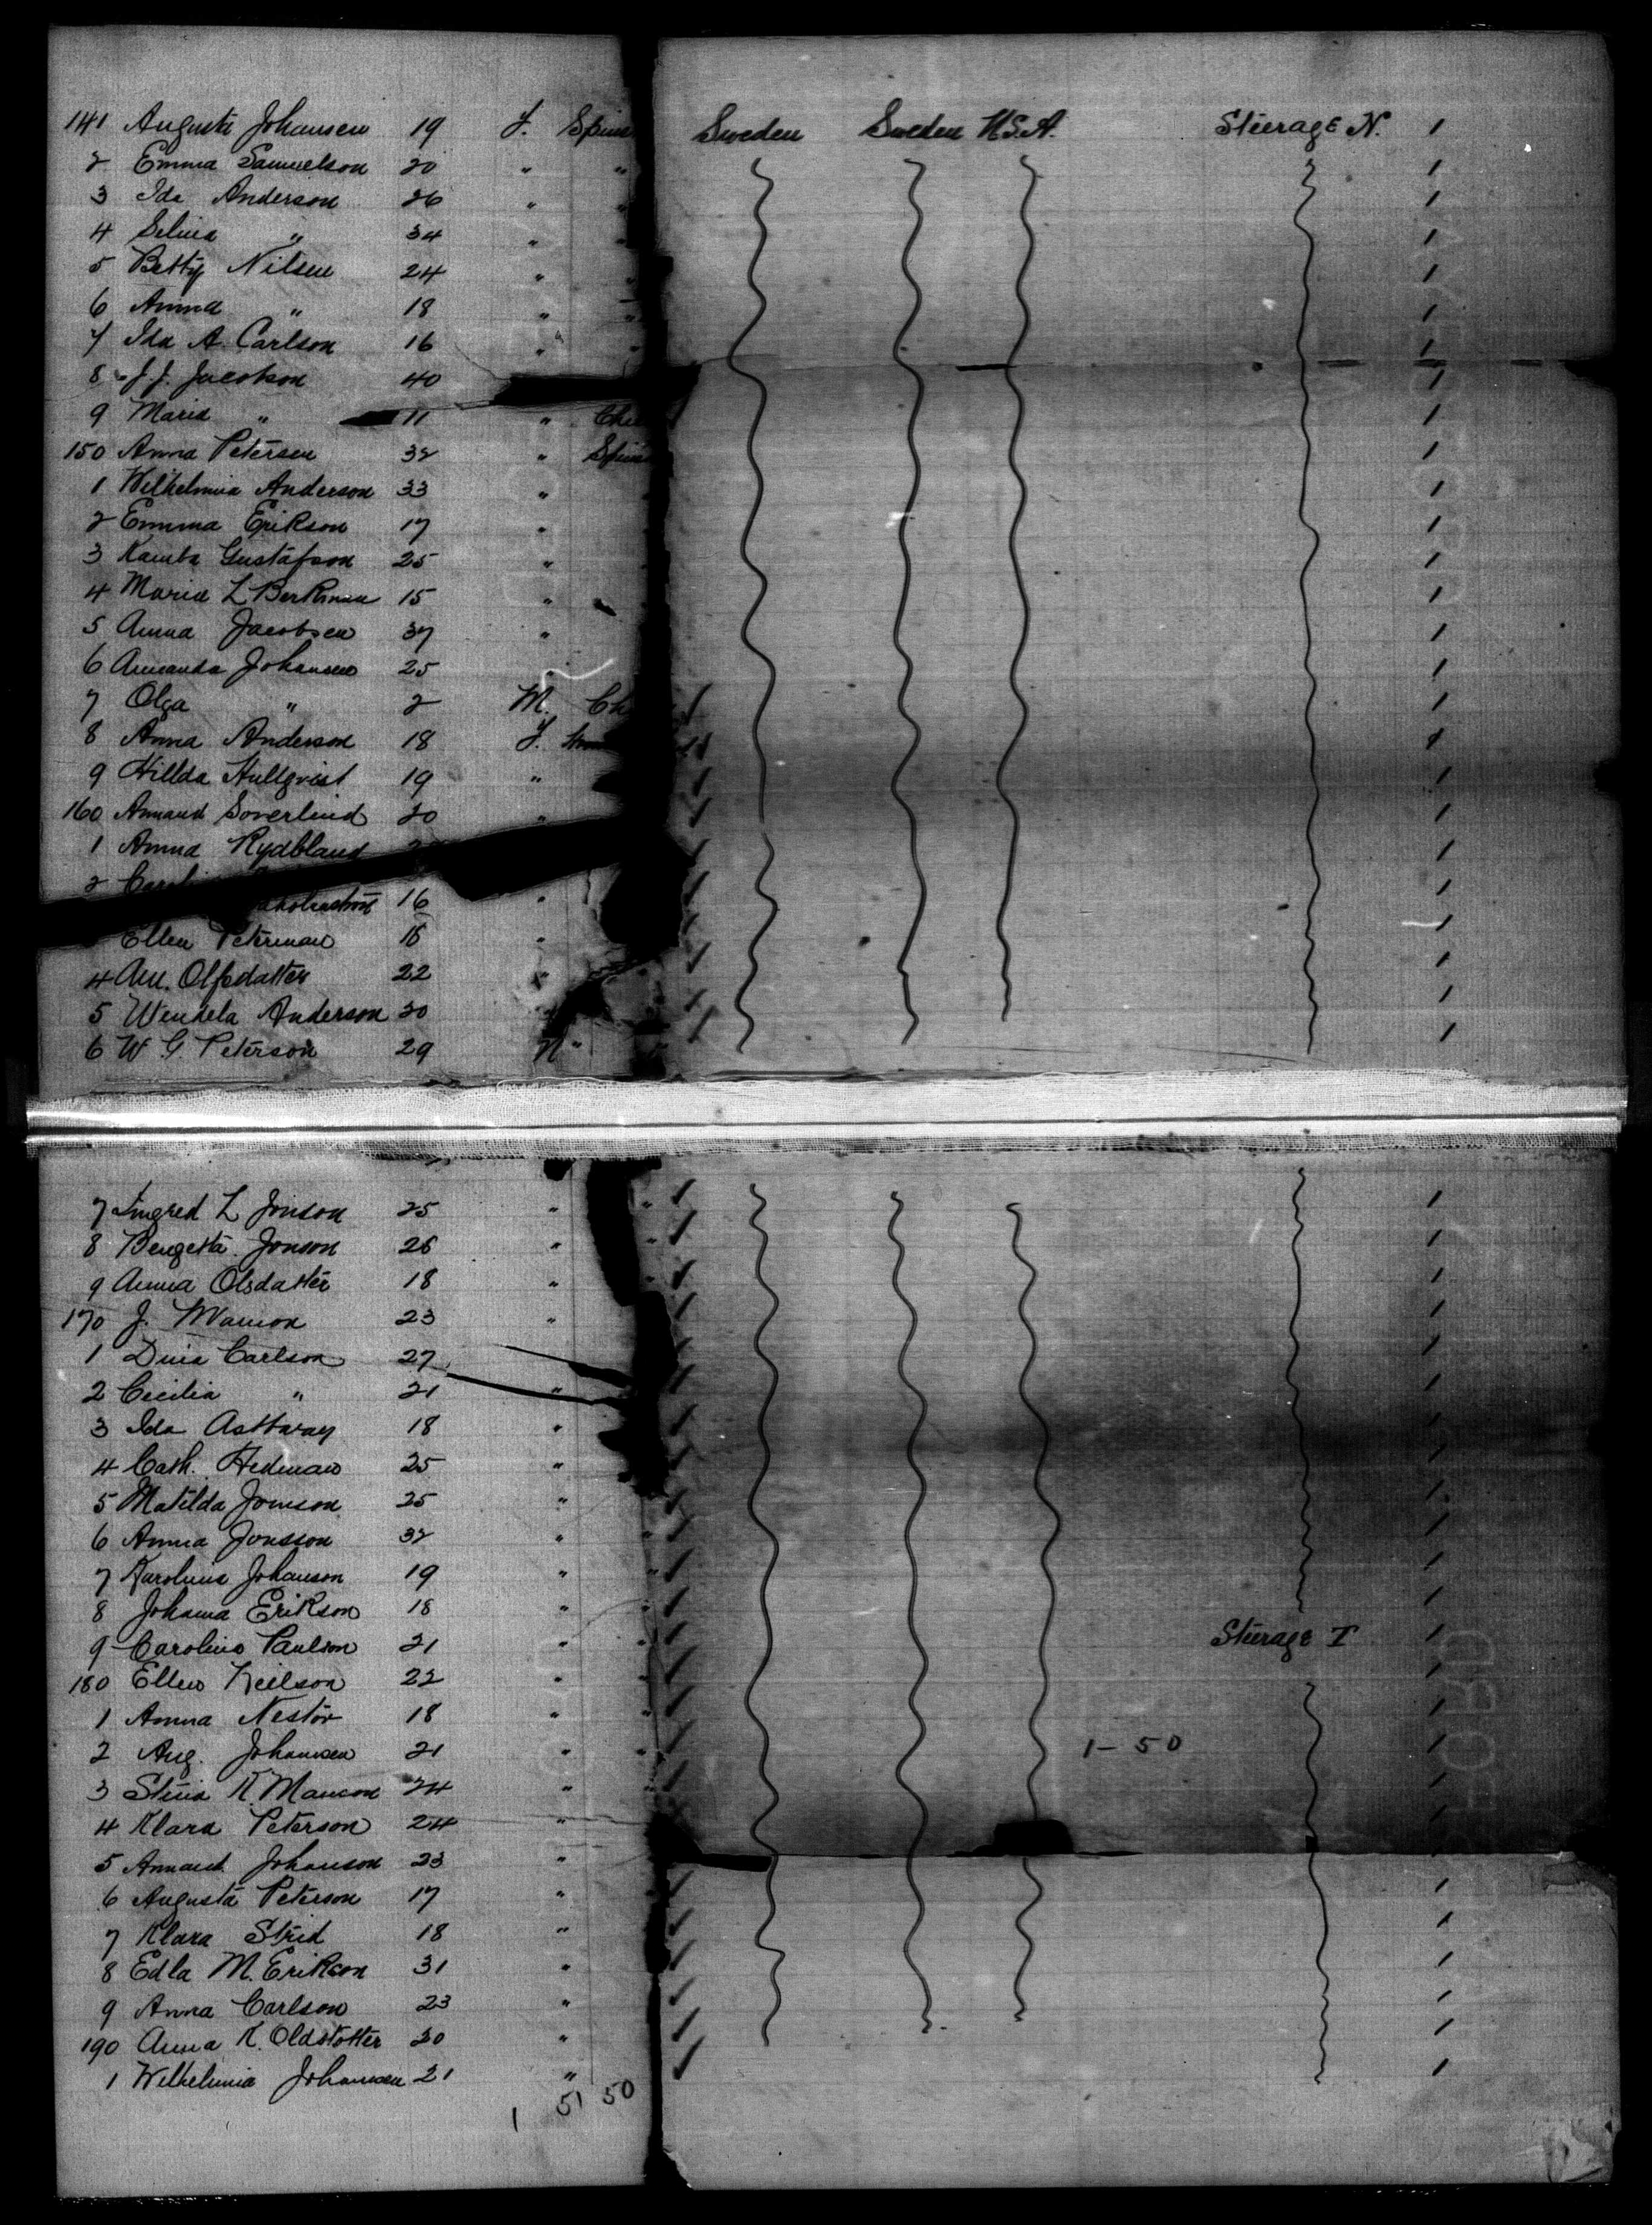 141 Auguste Johansen 19 F. Spins Sweden Sweden U.S.A. Steerage N. 1
2 Emma Samuelson 20 " " 1
3 Ida Anderson 26 " " 1
4 Selma " 34 " " 1
5 Betty Nilsen 24 " " 1
6 Anna " 18 " " 1
7 Ida A. Carlson 16 " " 1
8 J. J. Jacobson 40 1
9 Maria " 11 " Chi 1
150 Anna Petersen 32 " Spins 1
1 Wilhelmina Anderson 33 " 1
2 Emma Erikson 17 " 1
3 Gustafson 25 " 1
4 Maria L Berkman 15 " 1
5 Anna Jacobsen 37 " 1
6 Amanda Johansen 25 " 1
7 Olga " 2 M. Ch 1
8 Anna Anderson 18 F. 1
9 Hillda Hullqvist 19 " 1
160 Soverlind 20 " 1
1 Anna Rydbland 1
2 Caroli 1
16 " 1
Ellen Peterman 18 " 1
4 Olfsdatter 22 " 1
5 Wendela Anderson 30 1
6 W G. Peterson 29 " 1
7 Ingred L Jonson 25 " " 1
8 Bengetta Jonson 26 " " 1
9 Anna Olsdatter 18 " " 1
170 J. Manson 23 " 1
1 Carlson 27 1
2 Cecilia " 21 " 1
3 Ida 18 " 1
4 Cath. Hedman 25 " 1
5 Matilda Jonson 25 " 1
6 Anna Jonsson 32 " " 1
7 Karolina Johanson 19 " " 1
8 Johanna Erikson 18 " " 1
9 Carolina Paulson 21 " " Steerage I 1
180 Ellen Neilson 22 " " 1
1 Anna Nestor 18 " " 1
2 Aug. Johansen 21 " " 1-50 1
3 Stina K. Manson 24 " " 1
4 Klara Peterson 24 " 1
5 Johanson 23 " 1
6 Augusta Peterson 17 " 1
7 Klara Strid 18 " 1
8 Edla M. Erikson 31 " 1
9 Anna Carlson 23 " 1
190 Anna K. Oldstotter 20 " 1
1 Wilhelmina Johansen 21 " 1
1 51 50